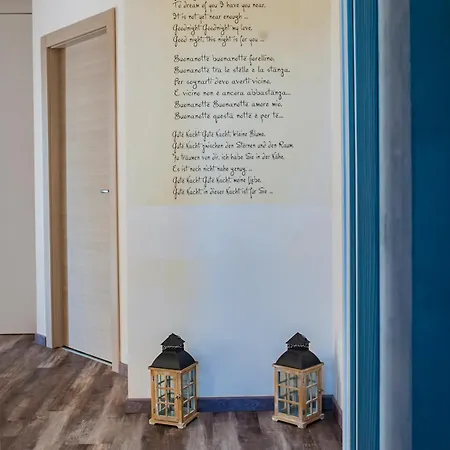 To dream of you I have you near,
It is not yet near enough ...
Goodnight Goodnight my love,
Good night, this night is for you ...
Buonanotte buonanotte fiorellino,
Buonanotte tra le stelle e la stanza,
Per sognarti devo averti vicino,
E vicino non è ancora abbastanza...
Buonanotte Buonanotte amore mio,
Buonanotte questa notte è per te...
Gute Nacht Gute Nacht, kleine Blume,
Gute Nacht zwischen den Sternen und den Raum,
Zu träumen von dir, ich habe Sie in der Nähe,
Es ist noch nicht nahe genug ...
Gute Nacht Gute Nacht, meine Liebe,
Gute Nacht, in dieser Nacht ist für Sie ...